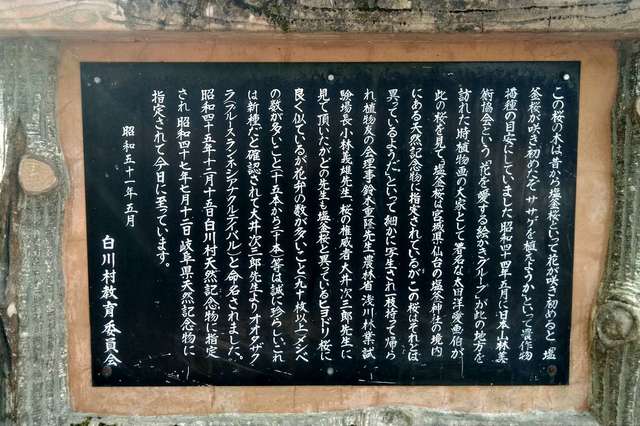 この桜の木は昔から塩釜桜といって花が咲き初めると「塩
釜桜が咲き初めたぞ、ササゲを植えようか」といって農作物
播種の目安にしていました。昭和四十四年五月に日本山林美
術協会という(花を愛する絵かきグループ)が此の地方を
訪れた時植物画の大家として著名な太田洋愛画伯が、
此の桜を見て「塩釜桜は宮城県仙台の塩釜神社の境内
にある天然記念物に指定されているが この桜はそれとは
異っているようだ」といって細かに写生され一枝持って帰ら
れ植物友の会理事鈴木重隆先生、農林省浅川林業試
験場長小林義雄先生、桜の権威者大井次三郎先生に
見て頂いたがどの先生も塩釜桜と異っているヒヨドリ桜に
良く似ているが花弁の数が多いこと(九十枚以上)メシベ
の数が多いこと(二十五本から三十本)等は誠に珍らしい、これ
は新種だと確認されて大井次三郎先生よりオオタザク
ラ(プルースランネシアクルテイバル)と命名されました。
昭和四十五年十二月十五日白川村天然記念物に指定
され 昭和四十七年七月十二日 岐阜県天然記念物に
指定されて今日に至っています。
昭和五十一年五月
白川村教育委員会